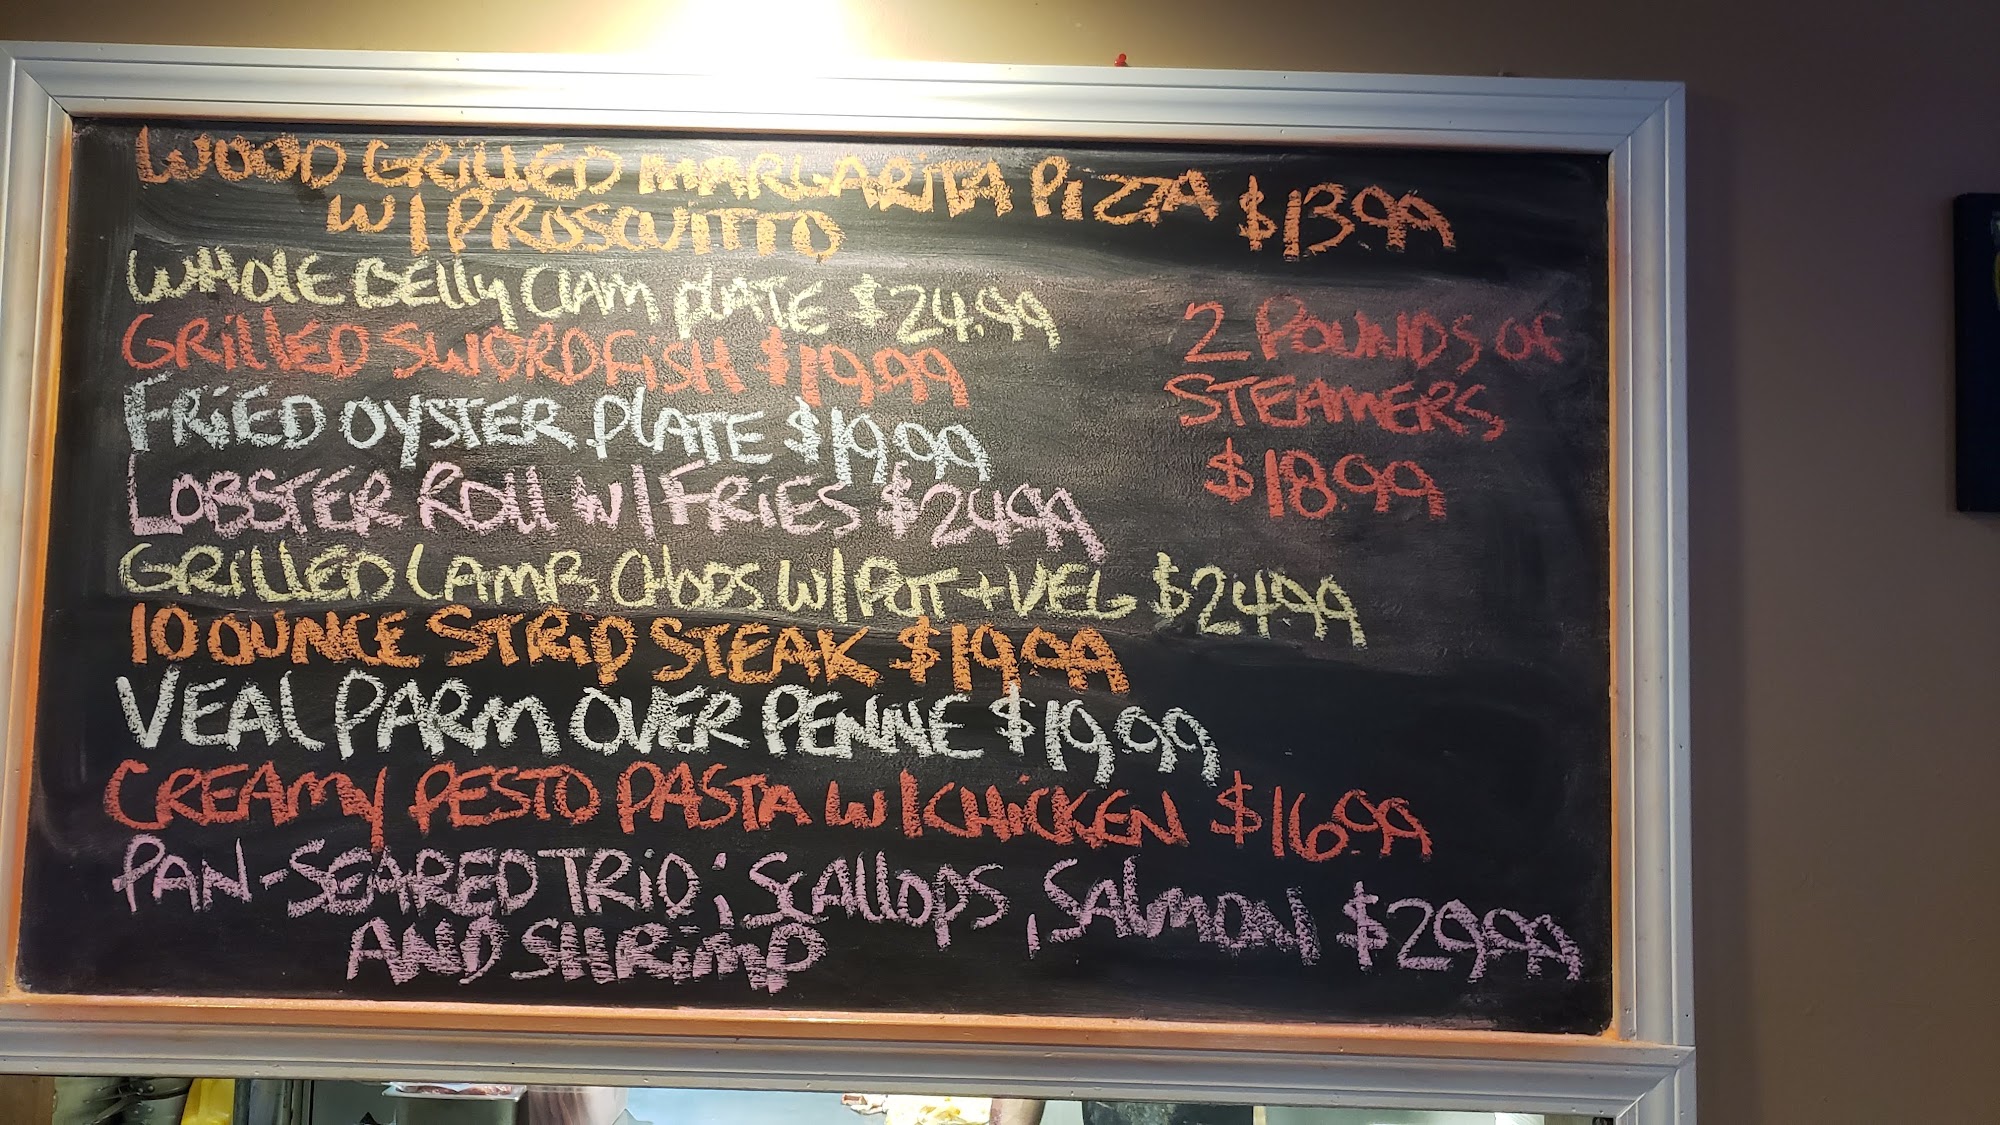 WOOD GRILLED MARGARITA PIZZA $13.99
W/ PROSCUITTO
WHOLE BELLY CLAM PLATE $24.99
GRILLED SWORDFISH $19.99
FRIED OYSTER PLATE $19.99
LOBSTER ROLL W/ FRIES $24.99
GRILLED LAMB CHOPS W/ POT + VEG $24.99
10 OUNCE STRIP STEAK $19.99
VEAL PARM OVER PENNE $19.99
CREAMY PESTO PASTA W/ CHICKEN $16.99
PAN-SEARED TRIO; SCALLOPS, SALMON $29.99
AND SHRIMP
2 POUNDS OF
STEAMERS
$18.99